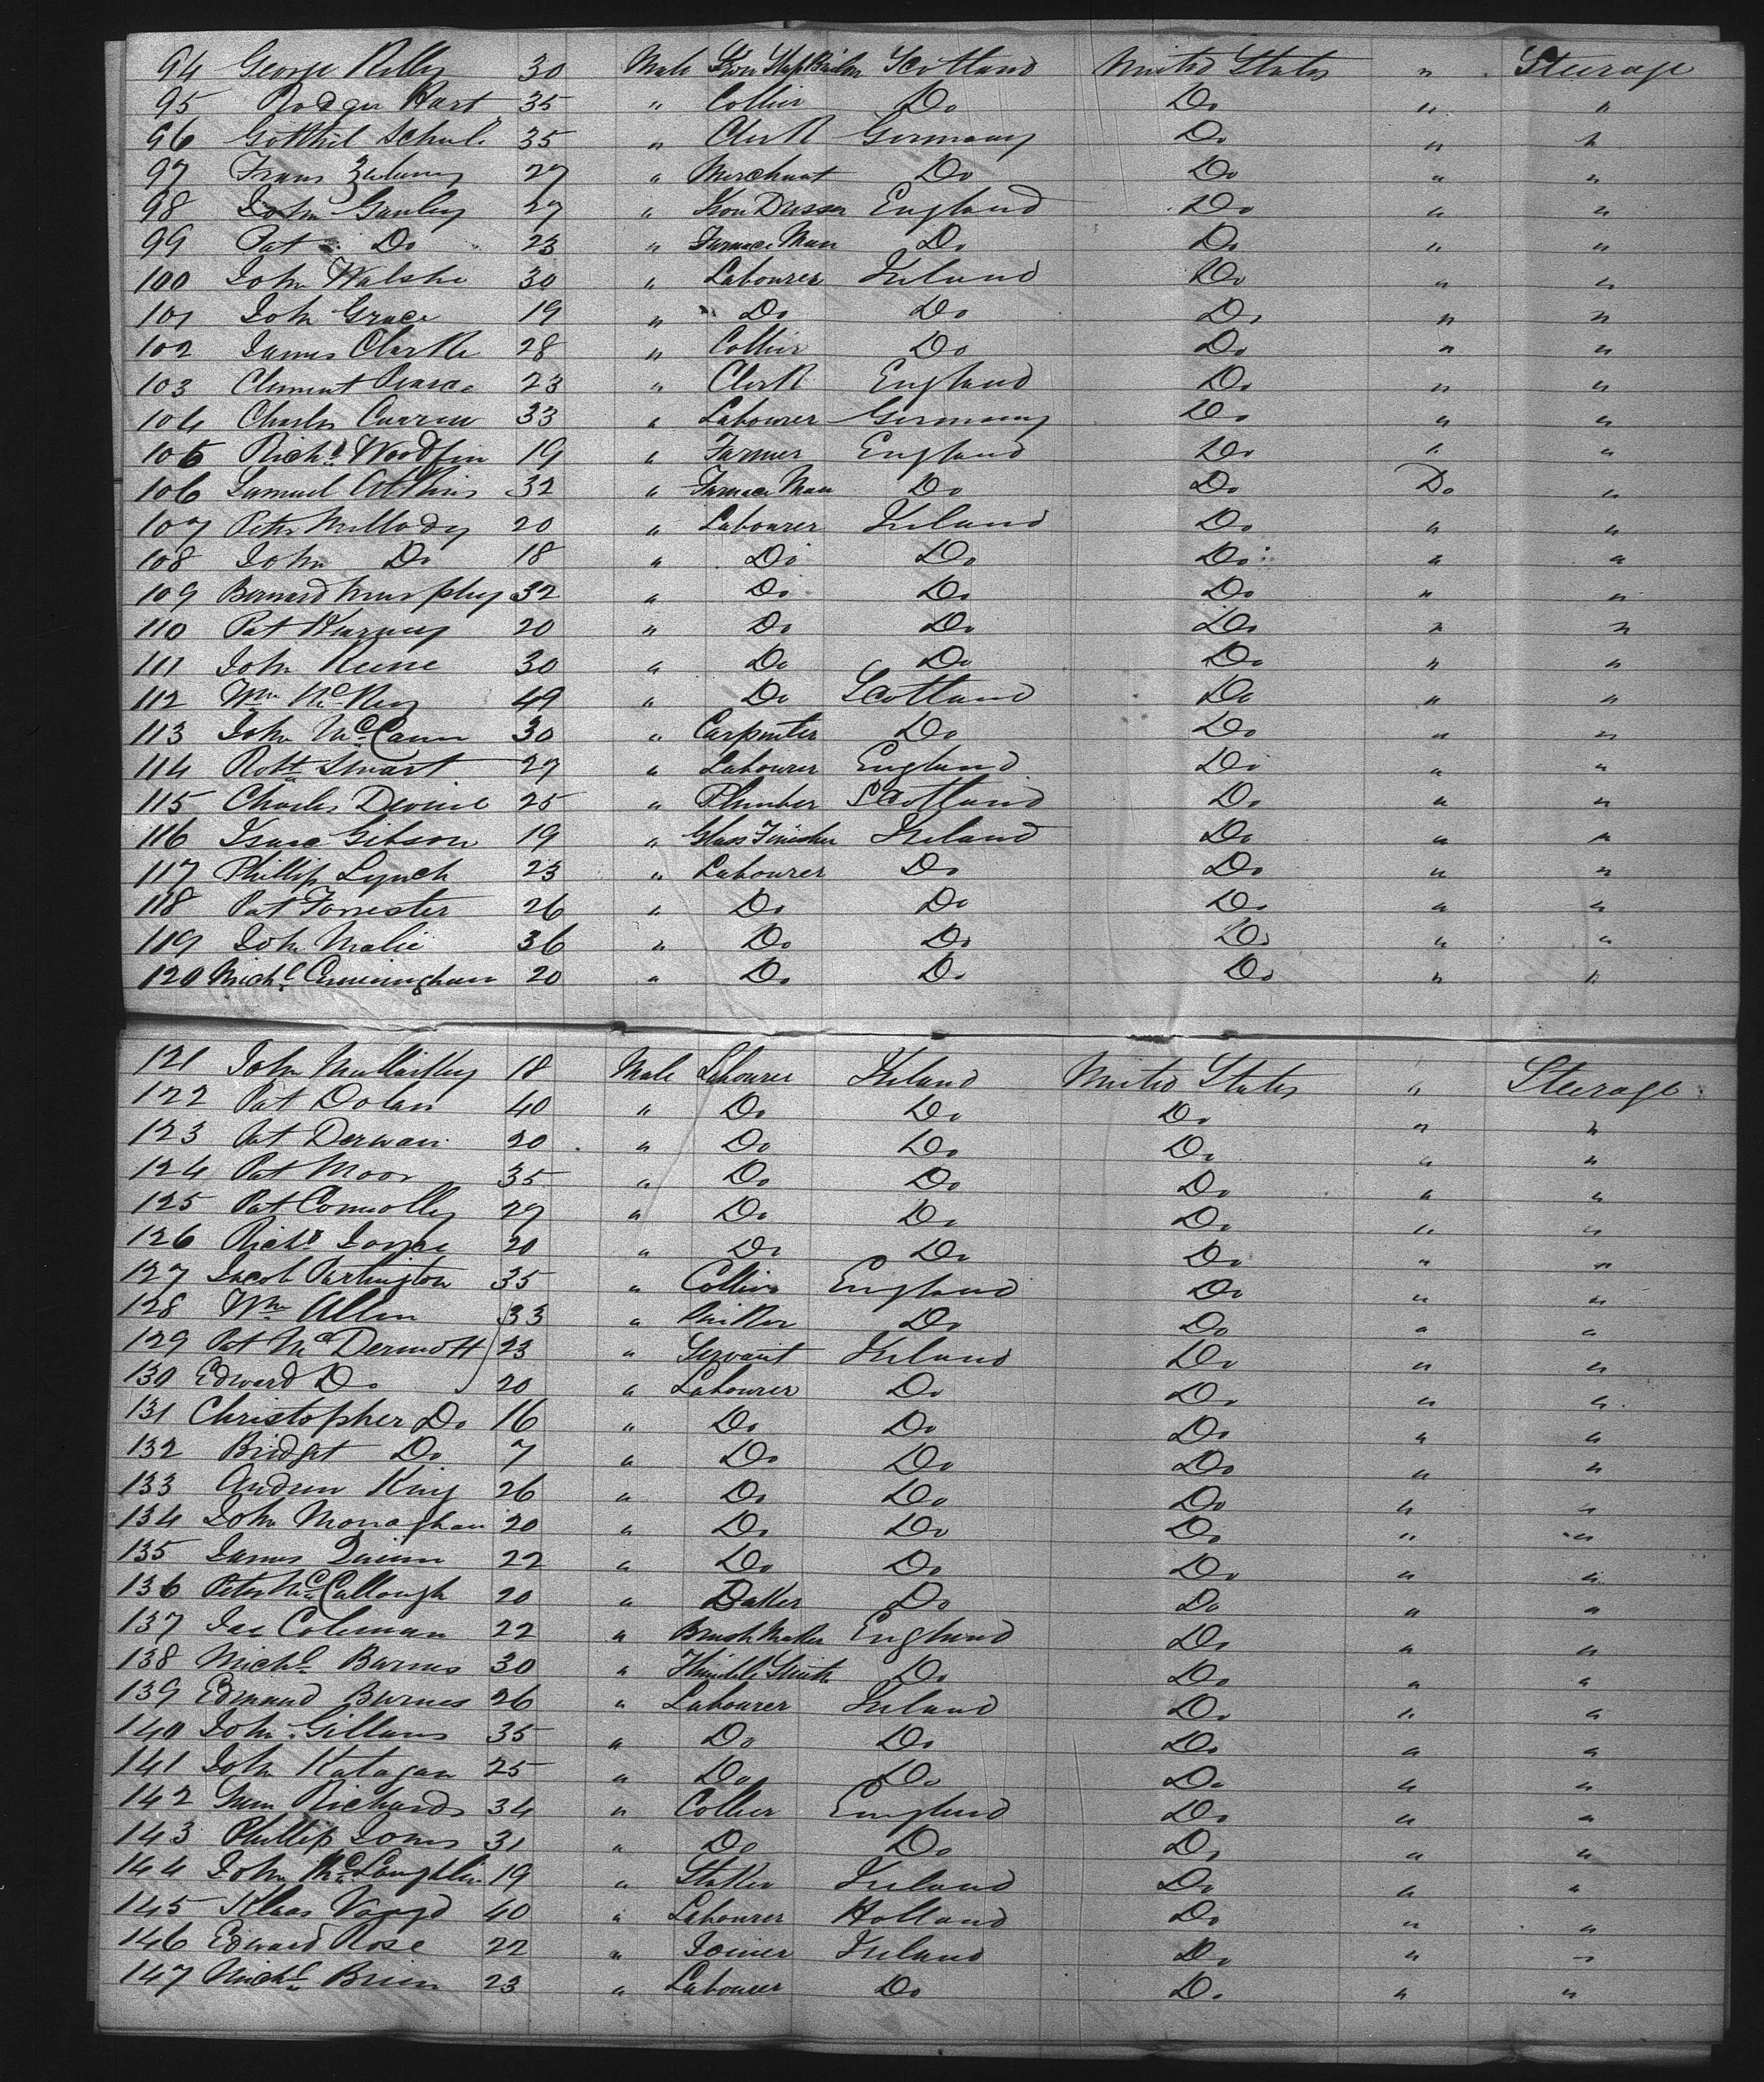 94 George Rilley 30 Male Iron Ship Builder Scotland United States " Steerage
95 Rodger Hart 35 " Collier Do Do " "
96 Gotthil Schul 35 " Clerk Germany Do " "
97 Frans 27 " Merchant Do Do " "
98 John Ganley 27 " Iron Dresser England Do " "
99 Pat Do 23 " Furnace Man Do Do " "
100 John Walshe 30 " Labourer Ireland Do " "
101 John Grace 19 " Do Do Do " "
102 James Clarke 28 " Collier Do Do " "
103 Clement Pearce 23 " Clerk England Do " "
104 Charles 33 " Labourer Germany Do " "
105 Richd Woodfin 19 " Farmer England Do " "
106 Samuel Atkins 32 " Furnace Man Do Do Do "
107 Peter Mullody 20 " Labourer Ireland Do " "
108 John Do 18 " Do Do Do " "
109 Bernard Murphy 32 " Do Do Do " "
110 Pat 20 " Do Do Do " "
111 John Keene 30 " Do Do Do " "
112 Wm McKey 49 " Do Scotland Do " "
113 John McCann 30 " Carpenter Do Do " "
114 Robt Smart 27 " Labourer England Do " "
115 Charles Devine 25 " Plumber Scotland Do " "
116 Isaac Gibson 19 " Glass Finisher Ireland Do " "
117 Phillip Lynch 23 " Labourer Do Do " "
118 Pat Forrester 26 " Do Do Do " "
119 John Malie 36 " Do Do Do " "
120 Michl Cunningham 20 " Do Do Do " "
121 John Mullarkey 18 Male Labourer Ireland United States " Steerage
122 Pat Dolan 40 " Do Do Do " "
123 Pat Derwan 20 " Do Do Do " "
124 Pat Moor 35 " Do Do Do " "
125 Pat Connolly 27 " Do Do Do " "
126 Richd Joyce 20 " Do Do Do " "
127 Jacob Partington 35 " Collier England Do " "
128 Wm Allen 33 " Do Do " "
129 Pat McDermott 23 " Servant Ireland Do " "
130 Edward Do 20 " Labourer Do Do " "
131 Christopher Do 16 " Do Do Do " "
132 Bridget Do 7 " Do Do Do " "
133 Andrew King 26 " Do Do Do " "
134 John Monaghan 20 " Do Do Do " "
135 James Quinn 22 " Do Do Do " "
136 Peter McCullough 20 " Baker Do Do " "
137 Jas Coleman 22 " Brush Maker England Do " "
138 Michl Barnes 30 " Thimble Smith Do Do " "
139 Edmund Burnes 26 " Labourer Ireland Do " "
140 John Gillans 35 " Do Do Do " "
141 John Katagan 25 " Do Do Do " "
142 Richards 34 " Collier England Do " "
143 Phillip Jones 31 " Do Do Do " "
144 John McLaughlin 19 " Ireland Do " "
145 Klaas Voogd 40 " Labourer Holland Do " "
146 Edward Rose 22 " Joiner Ireland Do " "
147 Michl Brien 23 " Labourer Do Do " "